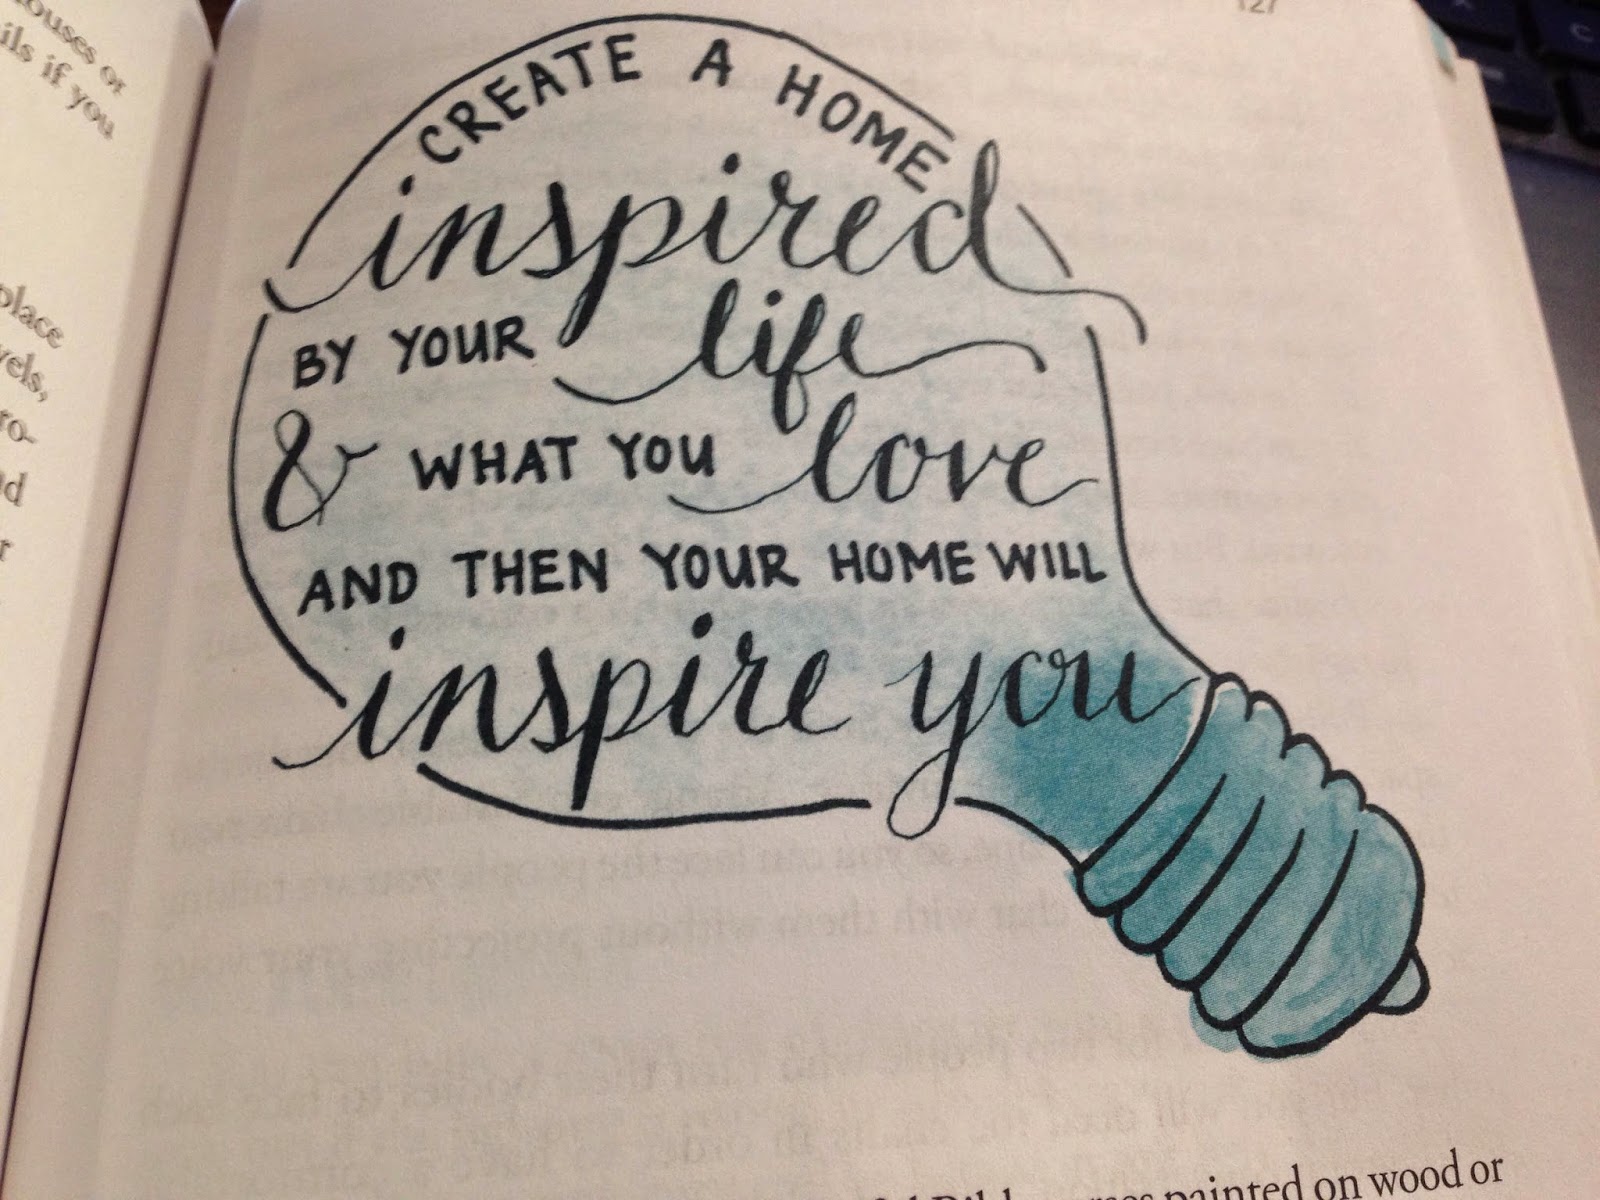 127
ouses or
ils if you
place
vels,
ro-
CREATE A HOME
inspired
BY YOUR life
& WHAT YOU love
AND THEN YOUR HOME WILL
inspire you
painted on wood or